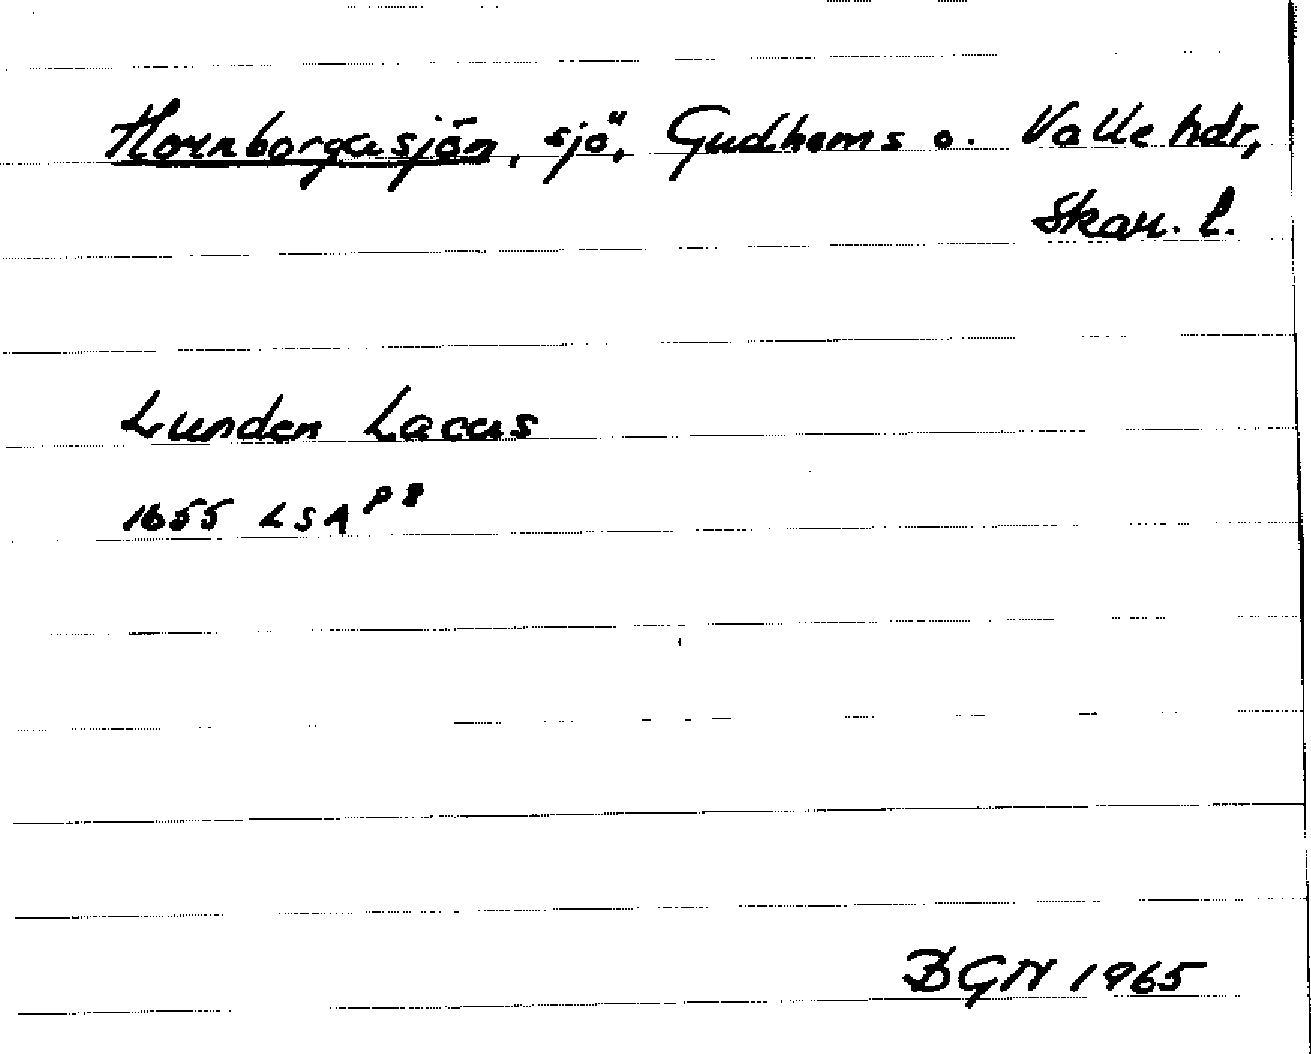 Hornborgasjön, sjö, Gudhems o. Valle hdr,
Skar. l.
Lunden Lacus
1655 LSA P 8
BGN 1965